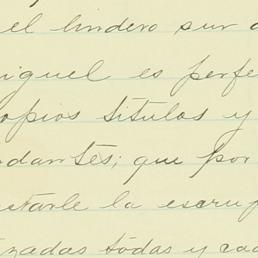 el lindero sur
iguel es perfe
opios titulos y
ndantes; que por
starle la escrup
inadas todas y cad